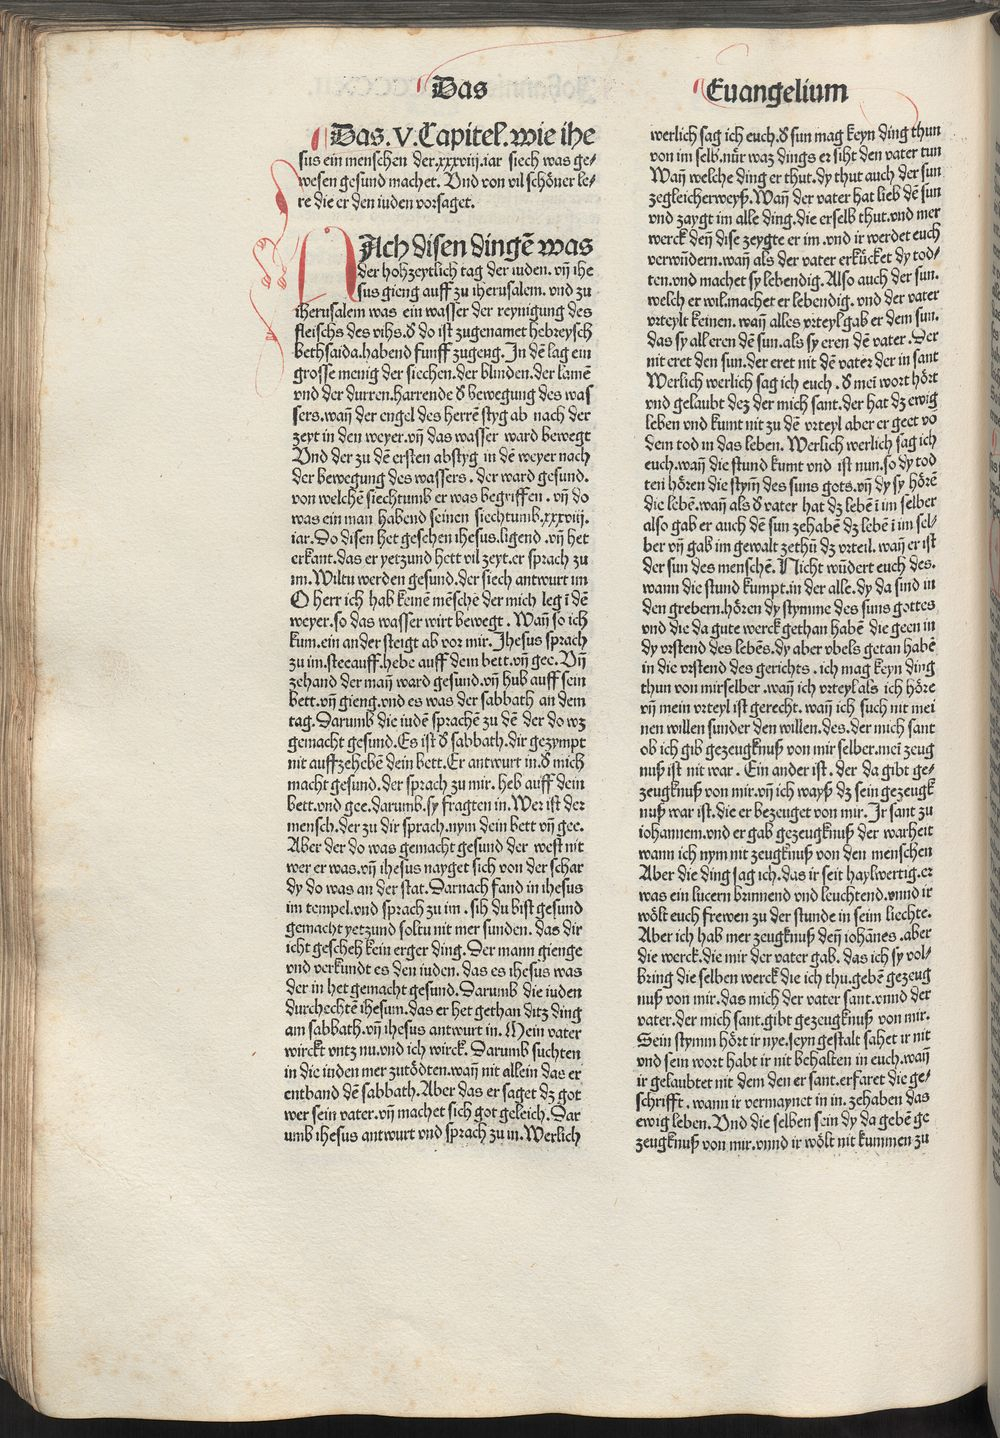 Das
Euangelium
Das .V. Capitel. wie ihe
sus ein menschen der .xxxviij. iar siech was ge-
wesen gesund machet. Vnd von vil schöner le-
re die er den iuden vorsaget.
NAch disen dingē was
der hohzeytlich tag der iuden. vñ ihe
sus gieng auff zu iherusalem. vnd zu
iherusalem was ein wasser der reynigung des
fleischs des vihs. d̕ do ist zugenamet hebreysch
bethsaida. habend funff zugeng. In dē lag ein
grosse menig der siechen. der blinden. der lamē
vnd der durren. harrende d̕ bewegung des was
sers. wañ der engel des herrē styg ab nach der
zeyt in den weyer. vñ das wasser ward bewegt
Vnd der zu dē ersten abstyg in dē weyer nach
der bewegung des wassers. der ward gesund.
von welchē siechtumb er was begriffen. vñ do
was ein man habend seinen siechtumb .xxxviij.
iar. Do disen het gesehen ihesus. ligend. vñ het
erkant. das er yetzund hett vil zeyt. er sprach zu
im. Wiltu werden gesund. der siech antwurt im
O herr ich hab keinē mēsche der mich leg ī dē
weyer. so das wasser wirt bewegt. Wañ so ich
kum. ein ander steigt ab vor mir. Jhesus sprach
zu im. stee auff. hebe auff dein bett. vñ gee. Vñ
zehand der mañ ward gesund. vñ hub auff sein
bett. vñ gieng. vnd es was der sabbath an dem
tag. Darumb die iudē sprachē zu dē der do wz
gemacht gesund. Es ist d̕ sabbath. dir gezympt
nit auffzehebē dein bett. Er antwurt in. d̕ mich
macht gesund. der sprach zu mir. heb auff dein
bett. vnd gee. darumb. sy fragten in. Wer ist der
mensch. der zu dir sprach. nym dein bett vñ gee.
Aber der do was gemacht gesund der west nit
wer er was. vñ ihesus nayget sich von der schar
dy do was an der stat. Darnach fand in ihesus
im tempel. vnd sprach zu im. sih du bist gesund
gemacht yetzund soltu nit mer sunden. das dir
icht gescheh kein erger ding. Der mann gienge
vnd verkundt es den iuden. das es ihesus was
der in het gemacht gesund. Darumb die iuden
durchechtē ihesum. das er het gethan ditz ding
am sabbath. vñ ihesus antwurt in. Mein vater
wirckt vntz nu. vnd ich wirck. Darumb suchten
in die iuden mer zutödten. wañ nit allein das er
entband dē sabbath. Aber das er saget dz got
wer sein vater. vñ machet sich got geleich. Dar
umb ihesus antwurt vnd sprach zu in. Werlich
werlich sag ich euch. d̕ sun mag keyn ding thun
von im selb. nůr waz dings er siht den vater tun
Wañ welche ding er thut. dy thut auch der sun
zegleicherweyß. Wañ der vater hat lieb dē sun
vnd zaygt im alle ding. die er selb thut. vnd mer
werck deñ dise zeygte er im. vnd ir werdet euch
verwūdern. wañ als der vater erkücket dy tod-
ten. vnd machet sy lebendig. Also auch der sun.
welch er wil. machet er lebendig. vnd der vater
vrteylt keinen. wañ alles vrteyl gab er dem sun.
das sy all eren dē sun. als sy eren dē vater. Der
nit eret den sun. der eret nit dē vater der in sant
Werlich werlich sag ich euch. d̕ meī wort hört
vnd gelaubt dez der mich sant. der hat dz ewig
leben vnd kumt nit zu dē vrteyl aber er geet vō
dem tod in das leben. Werlich werlich sag ich
euch. wañ die stund kumt vnd ist nun. so dy tod
ten hören die stym̃ des suns gots. vñ dy sy hörē
die lebē. wañ als d̕ vater hat dz lebē ī im selber
also gab er auch dē sun zehabē dz lebē ī im sel-
ber vñ gab im gewalt zethū dz vrteil. wañ er ist
der sun des menschē. Nicht wūdert euch des.
wann die stund kumpt. in der alle. dy da sind in
den grebern. hören dy stymme des suns gottes
vnd die da gute werck gethan habē die geen in
dy vrstend des lebēs. dy aber vbels getan habē
in die vrstend des gerichts. ich mag keyn ding
thun von mir selber. wañ ich vrteyl als ich höre
vñ mein vrteyl ist gerecht. wañ ich such nit mei
nen willen sunder den willen. des. der mich sant
ob ich gib gezeugknuß von mir selber. meī zeug
nuß ist nit war. Ein ander ist. der da gibt ge-
zeugknuß von mir. vñ ich wayß dz sein gezeugk
nuß war ist. die er bezeuget von mir. Jr sant zu
iohannem. vnd er gab gezeugknuß der warheit
wann ich nym nit zeugknuß von den menschen
Aber die ding sag ich. das ir seit haylwertig. er
was ein lucern brinnend vnd leuchtend. vnnd ir
wölt euch frewen zu der stunde in seim liechte.
Aber ich hab mer zeugknuß deñ iohānes. aber
die werck. die mir der vater gab. das ich sy vol-
bring die selben werck die ich thu. gebē gezeug
nuß von mir. das mich der vater sant. vnnd der
vater. der mich sant. gibt gezeugknuß von mir.
Sein stymm hört ir nye. seyn gestalt sahet ir nit
vnd sein wort habt ir nit behalten in euch. wañ
ir gelaubtet nit dem den er sant. erfaret die ge-
schrifft. wann ir vermaynet in in. zehaben das
ewig leben. Vnd die selben sein dy da gebē ge
zeugknuß von mir. vnnd ir wölt nit kummen zu